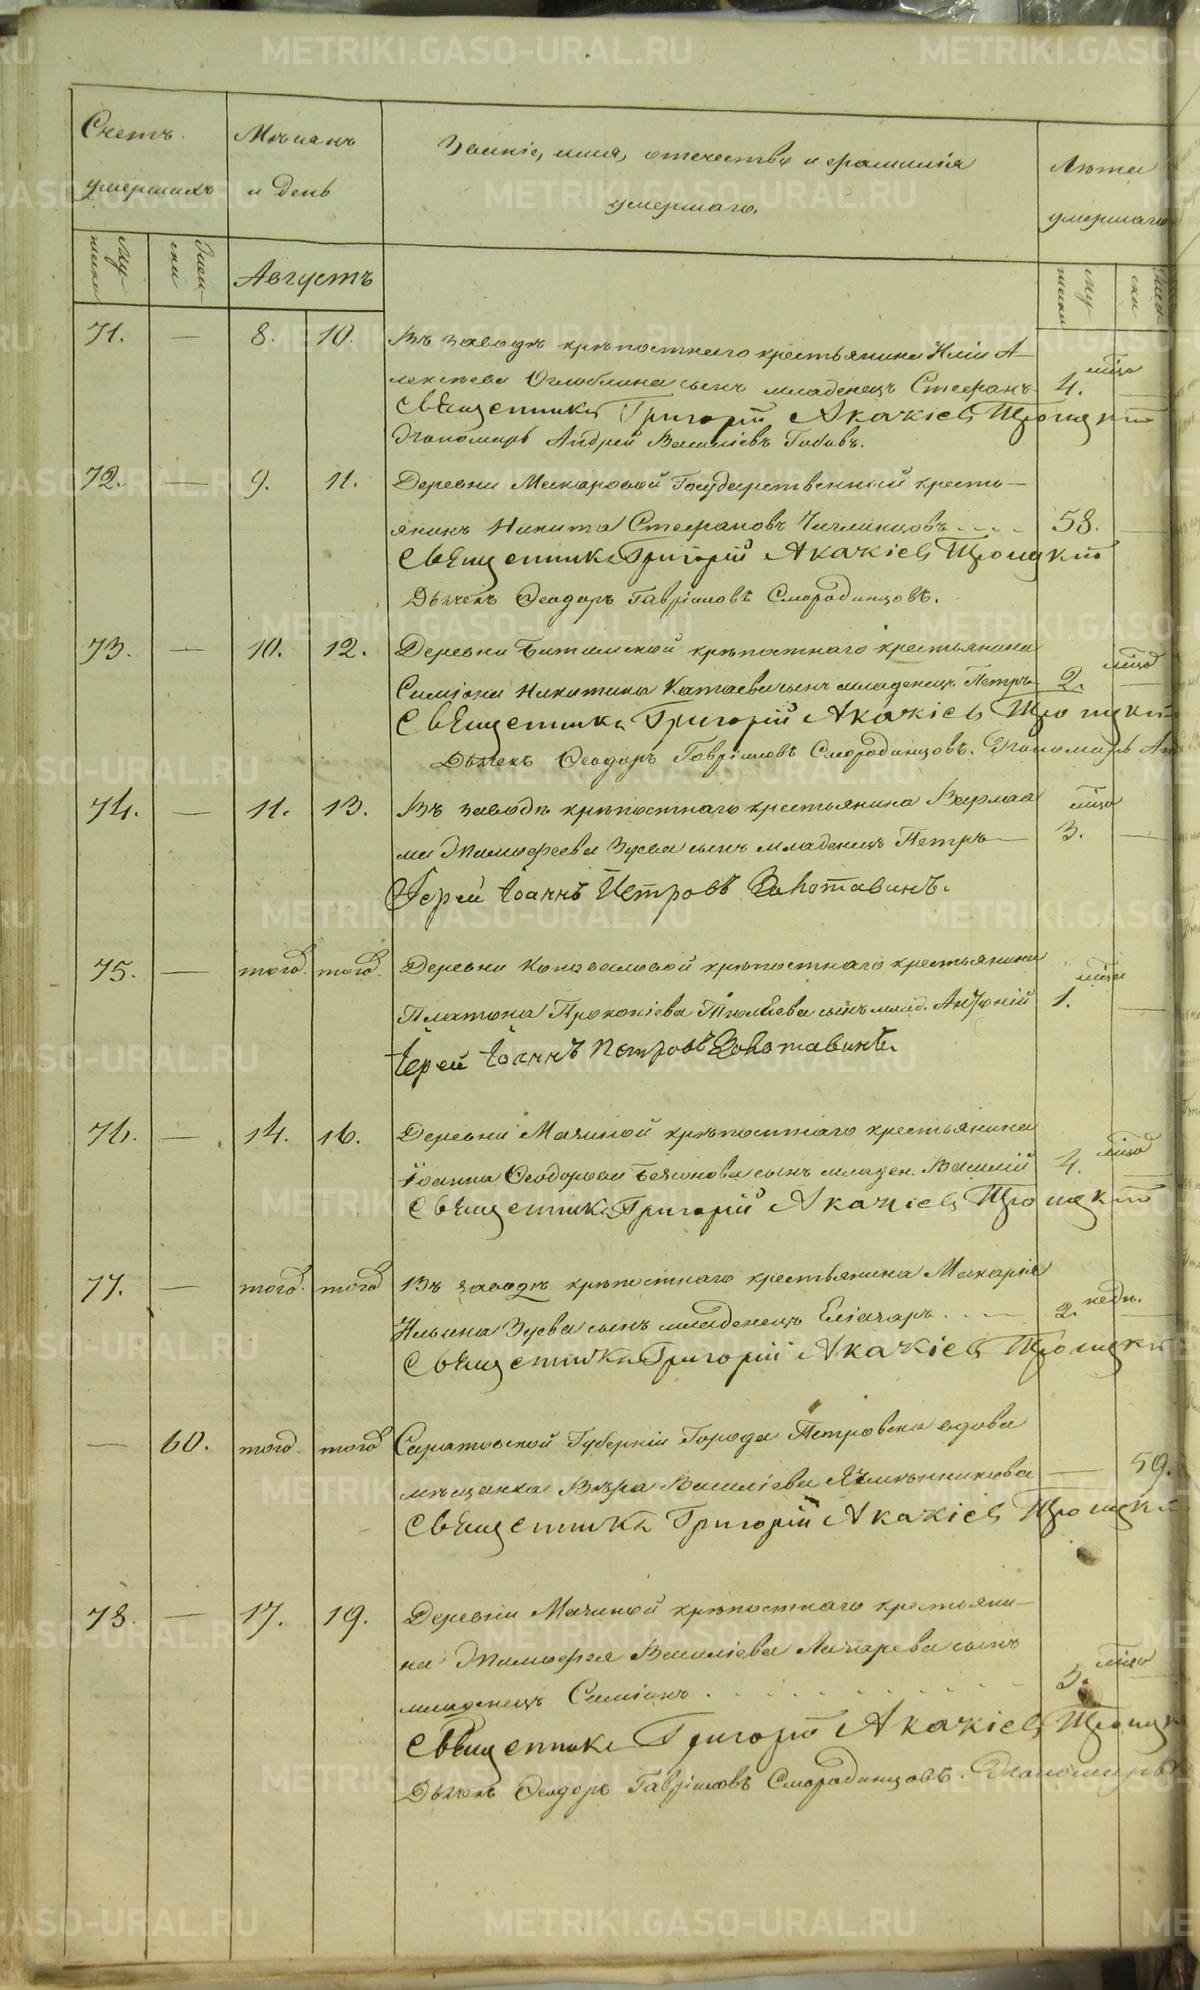 METRIKI.GASO-URAL.RU
Счетъ умершихъ
Мѣсяцъ и день
Званіе, имя, отечество и фамилія умершаго.
Лѣта умершаго
Мужеска
Женски
Августъ
Мужески
Женски
71. — 8. 10. Въ заводѣ крѣпостнаго крестьянина Иліи А-
лексѣева Оглоблина сынъ младенецъ Стефанъ 4. мѣся
Священникъ Григорій Акакіевъ Троицкій
Пономарь Андрей Васильевъ
72. — 9. 11. Деревни Макаровой Государственный кресть-
янинъ Никита Стефановъ 58. —
Священникъ Григорій Акакіевъ Троицкій
Дьячекъ Ѳеодоръ Гавріиловъ Смородинцовъ.
73. — 10. 12. Деревни Битимской крѣпостнаго крестьянина
Симіона Никитина Катаева сынъ младенецъ Петръ 2. мѣсяц —
Священникъ Григорій Акакіевъ Троицкій
Дьячекъ Ѳеодоръ Гавріиловъ Смородинцовъ. Пономарь Ан
74. — 11. 13. Въ заводѣ крѣпостнаго крестьянина Варлаа
ма Тимофеева Зуева сынъ младенецъ Петръ — 3. мѣся —
Іерей Іоаннъ Петровъ
75. — тогож. тогож. Деревни Коноваловой крѣпостнаго крестьянина
Платона Прокопіева сынъ млад. Антоній 1. мѣся —
Іерей Іоаннъ Петровъ
76. — 14. 16. Деревни Мачиной крѣпостнаго крестьянина
Іоанна Ѳеодорова сынъ младен. Василій 4. мѣсяц —
Священникъ Григорій Акакіевъ Троицкій
77. — тогож. тогож Въ заводѣ крѣпостнаго крестьянина Макарія
Ильина Зуева сынъ младенецъ Еліазаръ 2. недѣ. —
Священникъ Григорій Акакіевъ Троицкій
— 60. тогож. тогож Саратовской Губерніи Города Петровска вдова
мѣщанка Вѣра Васильева — 59.
Священникъ Григорій Акакіевъ Троицкій
78. — 17. 19. Деревни Мачиной крѣпостнаго крестьяни-
на Тимофея Васильева сынъ
младенецъ Симіонъ 3. мѣся
Священникъ Григорій Акакіевъ Троицк
Дьячекъ Ѳеодоръ Гавріиловъ Смородинцовъ. Пономарь